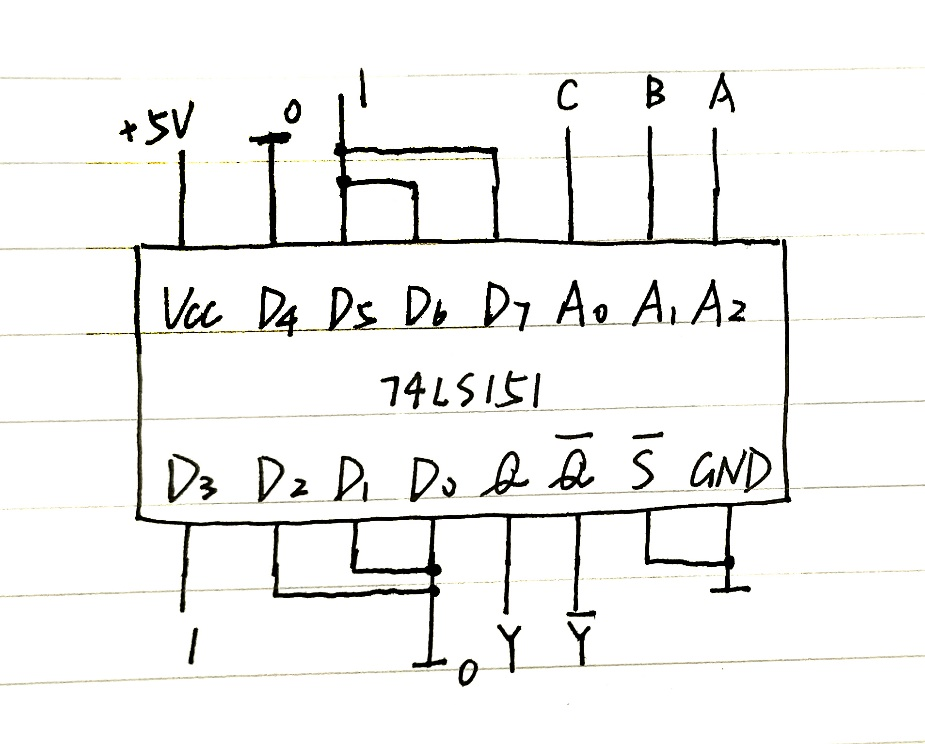 +5V 0 1 C B A
Vcc D4 D5 D6 D7 A0 A1 A2
74LS151
D3 D2 D1 D0 Q Q̅ S̅ GND
1 0 Y Y̅